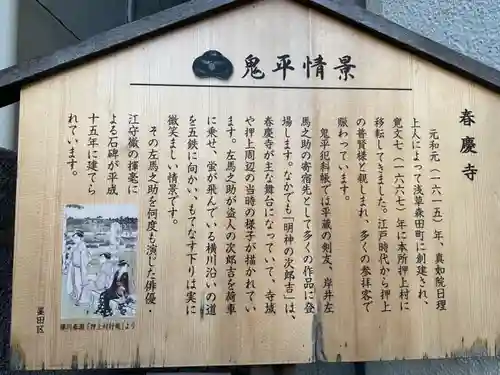 鬼平情景
春慶寺
元和元(一六一五)年、真如院日理
上人によって浅草森田町に創建され、
寛文七(一六六七)年に本所押上村に
移転してきました。江戸時代から押上
の普賢様と親しまれ、多くの参拝客で
賑わっています。
鬼平犯科帳では平蔵の剣友、岸井左
馬之助の寄宿先として多くの作品に登
場します。なかでも「明神の次郎吉」は、
春慶寺が主な舞台になっていて、寺域
や押上周辺の当時の様子が描かれてい
ます。左馬之助が盗人の次郎吉を荷車
に乗せ、蛍が飛んでいる横川沿いの道
を五鉄に向かい、もてなす下りは実に
微笑ましい情景です。
その左馬之助を何度も演じた俳優・
江守徹の揮毫に
よる石碑が平成
十五年に建てら
れています。
勝川春潮「押上村行楽」より
墨田区